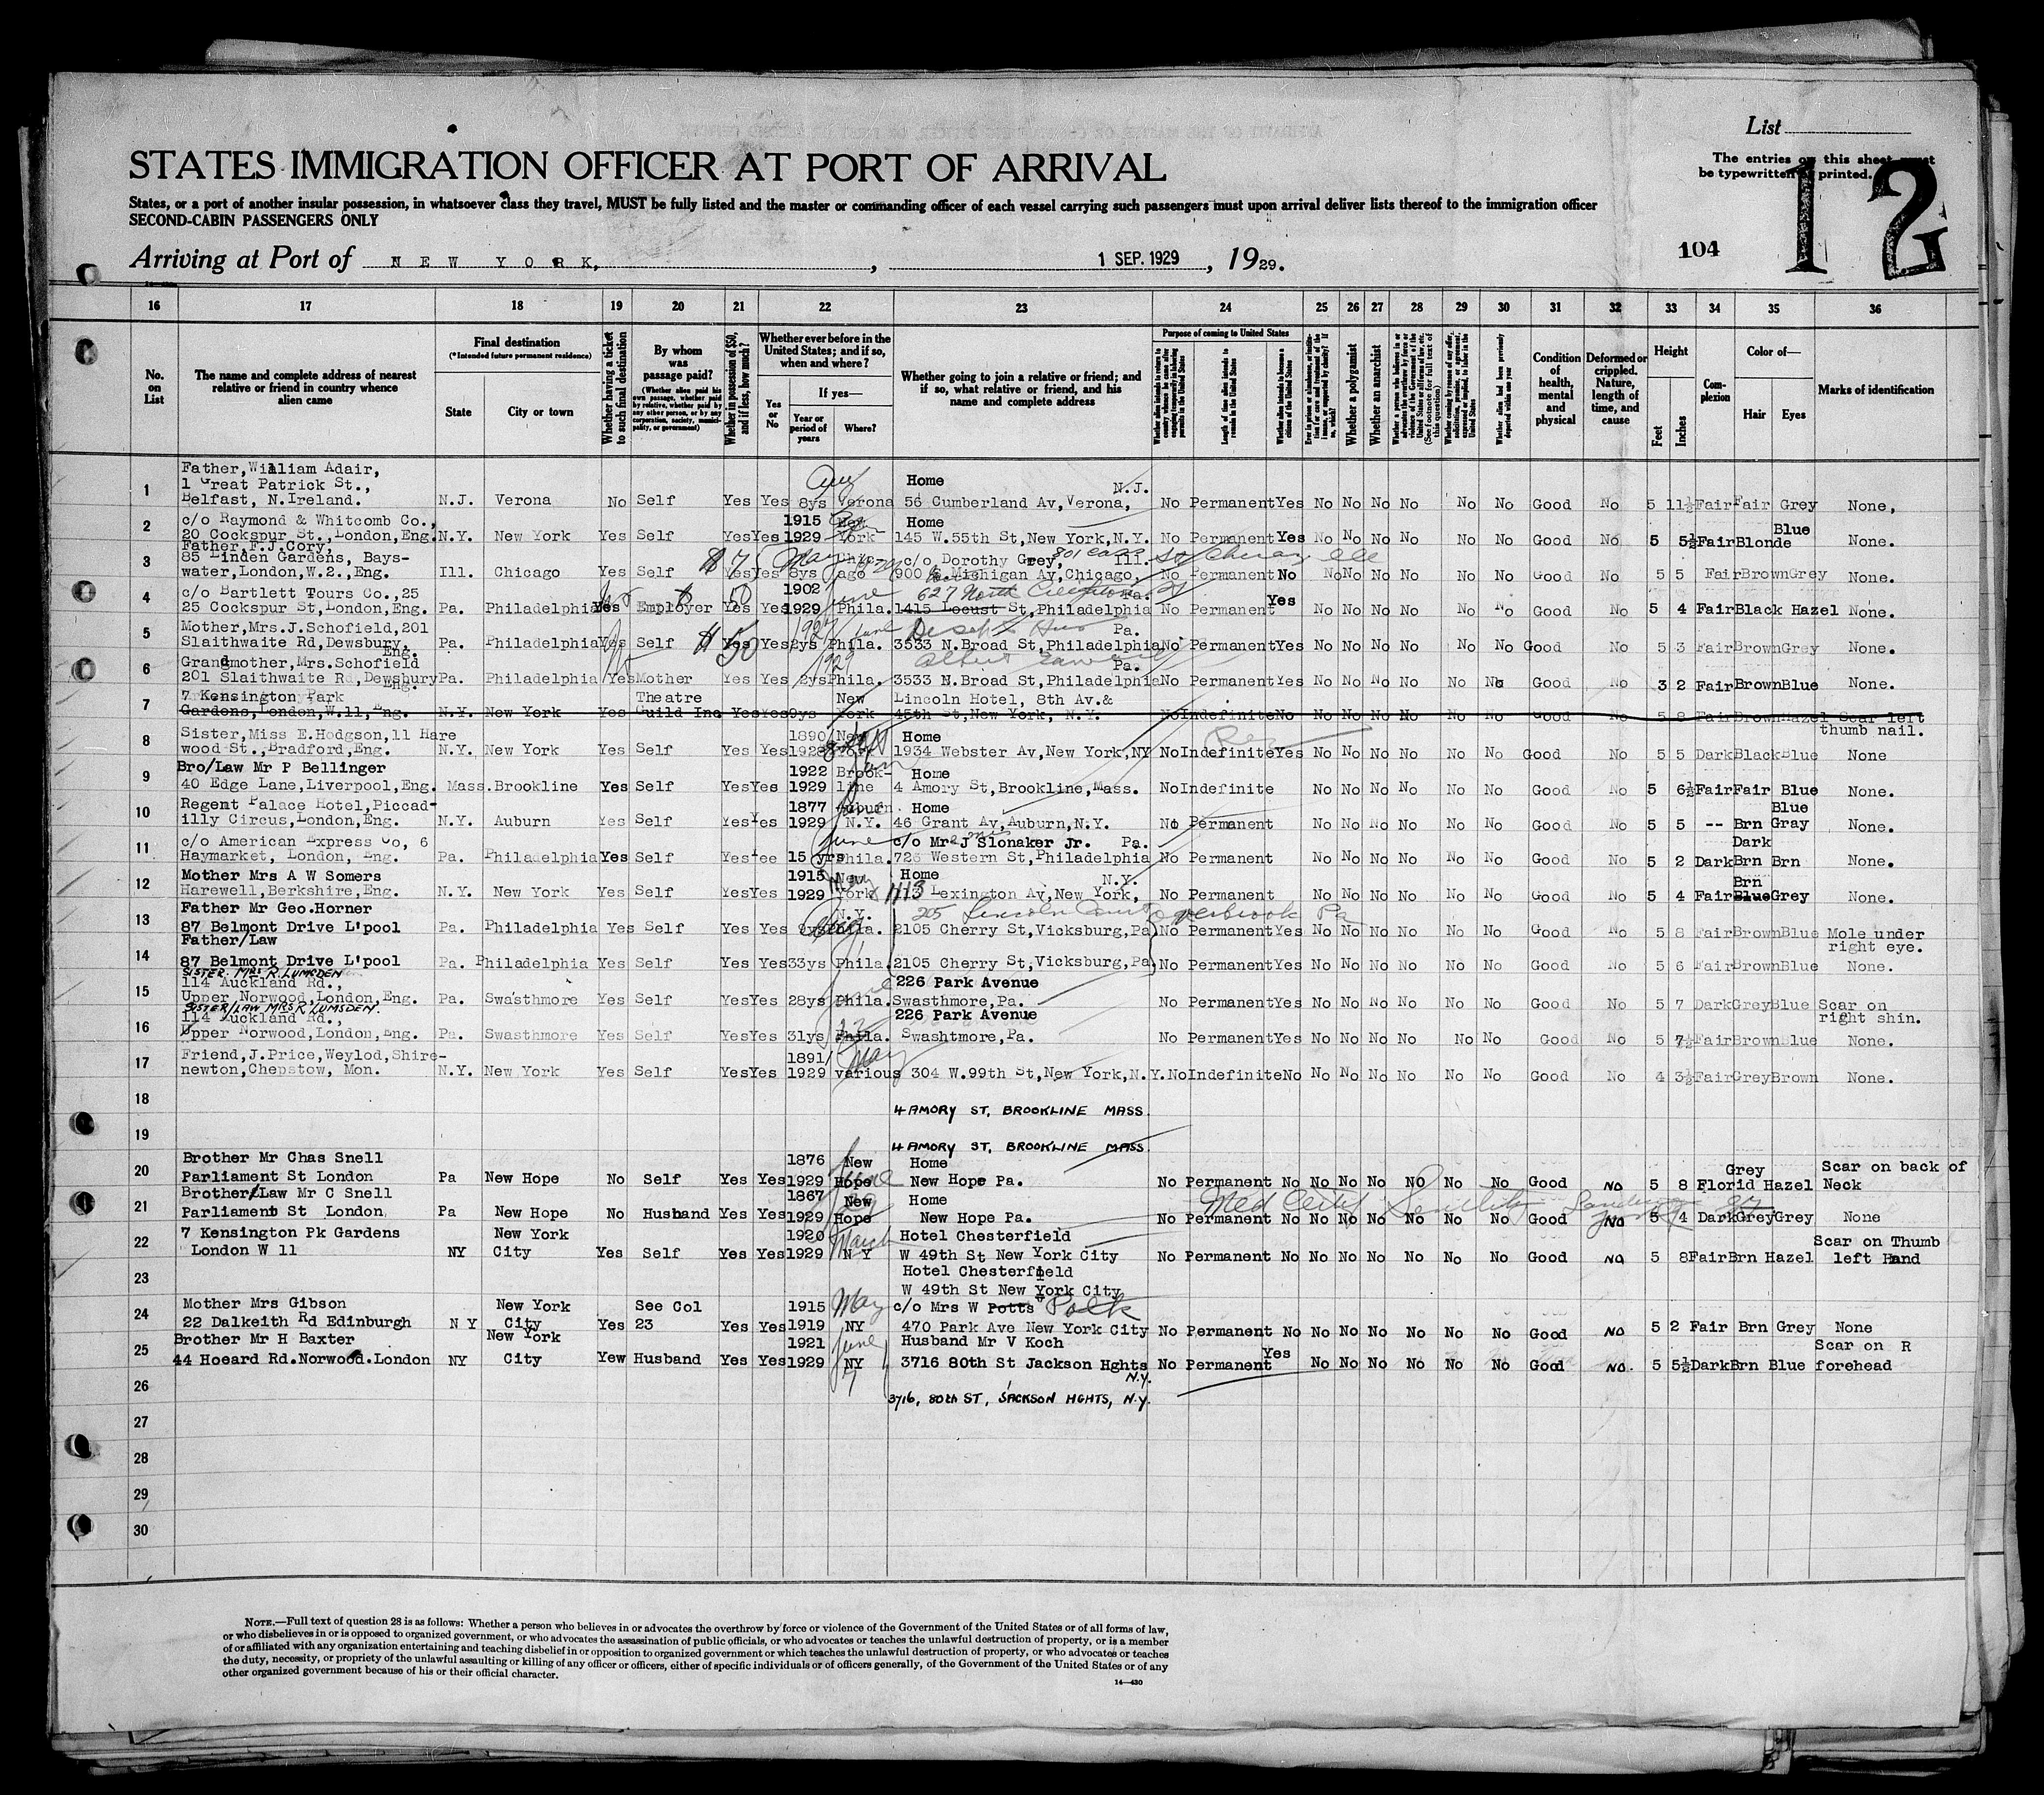 List
The entries on this sheet must
be typewritten or printed.
12
104
STATES IMMIGRATION OFFICER AT PORT OF ARRIVAL
States, or a port of another insular possession, in whatsoever class they travel, MUST be fully listed and the master or commanding officer of each vessel carrying such passengers must upon arrival deliver lists thereof to the immigration officer
SECOND-CABIN PASSENGERS ONLY
Arriving at Port of NEW YORK, , 1 SEP. 1929, 1929.
16 17 18 19 20 21 22 23 24 25 26 27 28 29 30 31 32 33 34 35 36
No. on List
The name and complete address of nearest relative or friend in country whence alien came
Final destination
(*Intended future permanent residence)
State
City or town
Whether having a ticket to such final destination
By whom was passage paid?
(Whether alien paid his own passage, whether paid by relative, whether paid by any other person, or by any corporation, society, municipality, or government)
Whether in possession of $50, and if less, how much?
Whether ever before in the United States; and if so, when and where?
Yes or No
If yes—
Year or period of years
Where?
Whether going to join a relative or friend; and if so, what relative or friend, and his name and complete address
Purpose of coming to United States
Length of time alien intends to remain in the United States
Whether a polygamist
Whether an anarchist
Condition of health, mental and physical
Deformed or crippled. Nature, length of time, and cause
Height
Feet
Inches
Complexion
Color of—
Hair
Eyes
Marks of identification
Father, William Adair, Aug Home
1 1 Great Patrick St., N.J.
Belfast, N.Ireland. N.J. Verona No Self Yes Yes 8ys Verona 56 Cumberland Av, Verona, No Permanent Yes No No No No No No Good No 5 11½ Fair Fair Grey None,
2 c/o Raymond & Whitcomb Co., 1915 New Home Blue
20 Cockspur St., London, Eng. N.Y. New York Yes Self Yes Yes 1929 York 145 W.55th St, New York, N.Y. No Permanent Yes No No No No No No Good No 5 5½ Fair Blonde None.
Father, F.J.Cory,
3 85 Linden Gardens, Bays- $75 May Chic- c/o Dorothy Grey, Ill.
water, London, W.2., Eng. Ill. Chicago Yes Self Yes Yes 8ys ago 900 S.Michigan Av, Chicago, No Permanent No No No No No No No Good No 5 5 Fair Brown Grey None.
4 c/o Bartlett Tours Co., 25 50 1902 June 627 North Pa. Yes
25 Cockspur St, London, Eng. Pa. Philadelphia Yes Employer Yes Yes 1929 Phila. 1415 Locust St, Philadelphia No Permanent No No No No No No Good No 5 4 Fair Black Hazel None.
5 Mother, Mrs.J.Schofield, 201 $50 1927 June Pa.
Slaithwaite Rd, Dewsbury, Eng. Pa. Philadelphia Yes Self Yes Yes 2ys Phila. 3533 N.Broad St, Philadelphia No Permanent Yes No No No No No No Good No 5 3 Fair Brown Grey None.
6 Grandmother, Mrs.Schofield 1929 Albert Pa.
201 Slaithwaite Rd, Dewsbury Eng. Pa. Philadelphia Yes Mother Yes Yes 2ys Phila. 3533 N.Broad St, Philadelphia No Permanent Yes No No No No No No Good No 3 2 Fair Brown Blue None.
7 7 Kensington Park Theatre New Lincoln Hotel, 8th Av.&
Gardens, London, W.11, Eng. N.Y. New York Yes Guild Inc Yes Yes 9ys York 45th St, New York, N.Y. No Indefinite No No No No No No No Good No 5 8 Fair Brown Hazel Scar left
thumb nail.
8 Sister, Miss E.Hodgson, 11 Hare 1890 New Home
wood St., Bradford, Eng. N.Y. New York Yes Self Yes Yes 1928 York 1934 Webster Av, New York, NY No Indefinite Yes No No No No No No Good No 5 5 Dark Black Blue None
9 Bro/Law Mr P Bellinger 1922 Brook- Home
40 Edge Lane, Liverpool, Eng. Mass. Brookline Yes Self Yes Yes 1929 line 4 Amory St, Brookline, Mass. No Indefinite No No No No No No Good No 5 6½ Fair Fair Blue None.
10 Regent Palace Hotel, Piccad- 1877 Auburn. Home Blue
illy Circus, London, Eng. N.Y. Auburn Yes Self Yes Yes 1929 N.Y. 46 Grant Av, Auburn, N.Y. No Permanent No No No No No No Good No 5 5 -- Brn Gray None.
11 c/o American Express Co, 6 June c/o Mr J Slonaker Jr. Pa. Dark
Haymarket, London, Eng. Pa. Philadelphia Yes Self Yes Yes 15 yrs Phila. 726 Western St, Philadelphia No Permanent No No No No No No Good No 5 2 Dark Brn Brn None.
12 Mother Mrs A W Somers 1915 New Home N.Y. Brn
Harewell, Berkshire, Eng. N.Y. New York Yes Self Yes Yes 1929 York 1113 Lexington Av, New York, No Permanent No No No No No No Good No 5 4 Fair Blue Grey None.
13 Father Mr Geo.Horner N.Y. 205 Lincoln Court Overbrook Pa
87 Belmont Drive L'pool Pa. Philadelphia Yes Self Yes Yes Phila. 2105 Cherry St, Vicksburg, Pa No Permanent Yes No No No No No No Good No 5 8 Fair Brown Blue Mole under
right eye.
14 Father/Law
87 Belmont Drive L'pool Pa. Philadelphia Yes Self Yes Yes 33ys Phila. 2105 Cherry St, Vicksburg, Pa No Permanent Yes No No No No No No Good No 5 6 Fair Brown Blue None.
SISTER. MRS R. LUMSDEN
15 114 Auckland Rd., 226 Park Avenue
Upper Norwood, London, Eng. Pa. Swasthmore Yes Self Yes Yes 28ys Phila. Swasthmore, Pa. No Permanent Yes No No No No No No Good No 5 7 Dark Grey Blue Scar on
right shin.
SISTER/LAW MRS R LUMSDEN.
16 114 Auckland Rd., 226 Park Avenue
Upper Norwood, London, Eng. Pa. Swasthmore Yes Self Yes Yes 31ys Phila. Swashtmore, Pa. No Permanent Yes No No No No No No Good No 5 7½ Fair Brown Blue None.
17 Friend, J.Price, Weylod, Shire- 1891/ May
newton, Chepstow, Mon. N.Y. New York Yes Self Yes Yes 1929 various 304 W.99th St, New York, N.Y. No Indefinite No No No No No No No Good No 4 3½ Fair Grey Brown None.
18 4 AMORY ST, BROOKLINE MASS.
19 4 AMORY ST, BROOKLINE MASS
20 Brother Mr Chas Snell 1876 New Home Grey Scar on back of
Parliament St London Pa New Hope No Self Yes Yes 1929 Hope New Hope Pa. No Permanent No No No No No No No Good NO 5 8 Florid Hazel Neck
21 Brother/Law Mr C Snell 1867 New Home Med Certif Senility
Parliament St London Pa New Hope No Husband Yes Yes 1929 Hope New Hope Pa. No Permanent No No No No No No No Good NO 5 4 Dark Grey Grey None
22 7 Kensington Pk Gardens New York 1920 March Hotel Chesterfield Scar on Thumb
London W 11 NY City Yes Self Yes Yes 1929 N Y W 49th St New York City No Permanent No No No No No No No Good NO 5 8 Fair Brn Hazel left Hand
23 Hotel Chesterfield
W 49th St New York City
24 Mother Mrs Gibson New York See Col 1915 May c/o Mrs W Potts Polk
22 Dalkeith Rd Edinburgh N Y City Yes 23 Yes Yes 1919 NY 470 Park Ave New York City No Permanent No No No No No No No Good NO 5 2 Fair Brn Grey None
25 Brother Mr H Baxter New York 1921 June Husband Mr V Koch Yes Scar on R
44 Hoeard Rd.Norwood.London NY City Yew Husband Yes Yes 1929 NY 3716 80th St Jackson Hghts N.Y. No Permanent No No No No No No Good NO. 5 5½ Dark Brn Blue forehead
26 3716, 80th ST, JACKSON HGHTS, N.Y.
27
28
29
30
NOTE.—Full text of question 28 is as follows: Whether a person who believes in or advocates the overthrow by force or violence of the Government of the United States or of all forms of law,
or who disbelieves in or is opposed to organized government, or who advocates the assassination of public officials, or who advocates or teaches the unlawful destruction of property, or is a member
of or affiliated with any organization entertaining and teaching disbelief in or opposition to organized government or which teaches the unlawful destruction of property, or who advocates or teaches
the duty, necessity, or propriety of the unlawful assaulting or killing of any officer or officers, either of specific individuals or of officers generally, of the Government of the United States or of any
other organized government because of his or their official character.
14—430